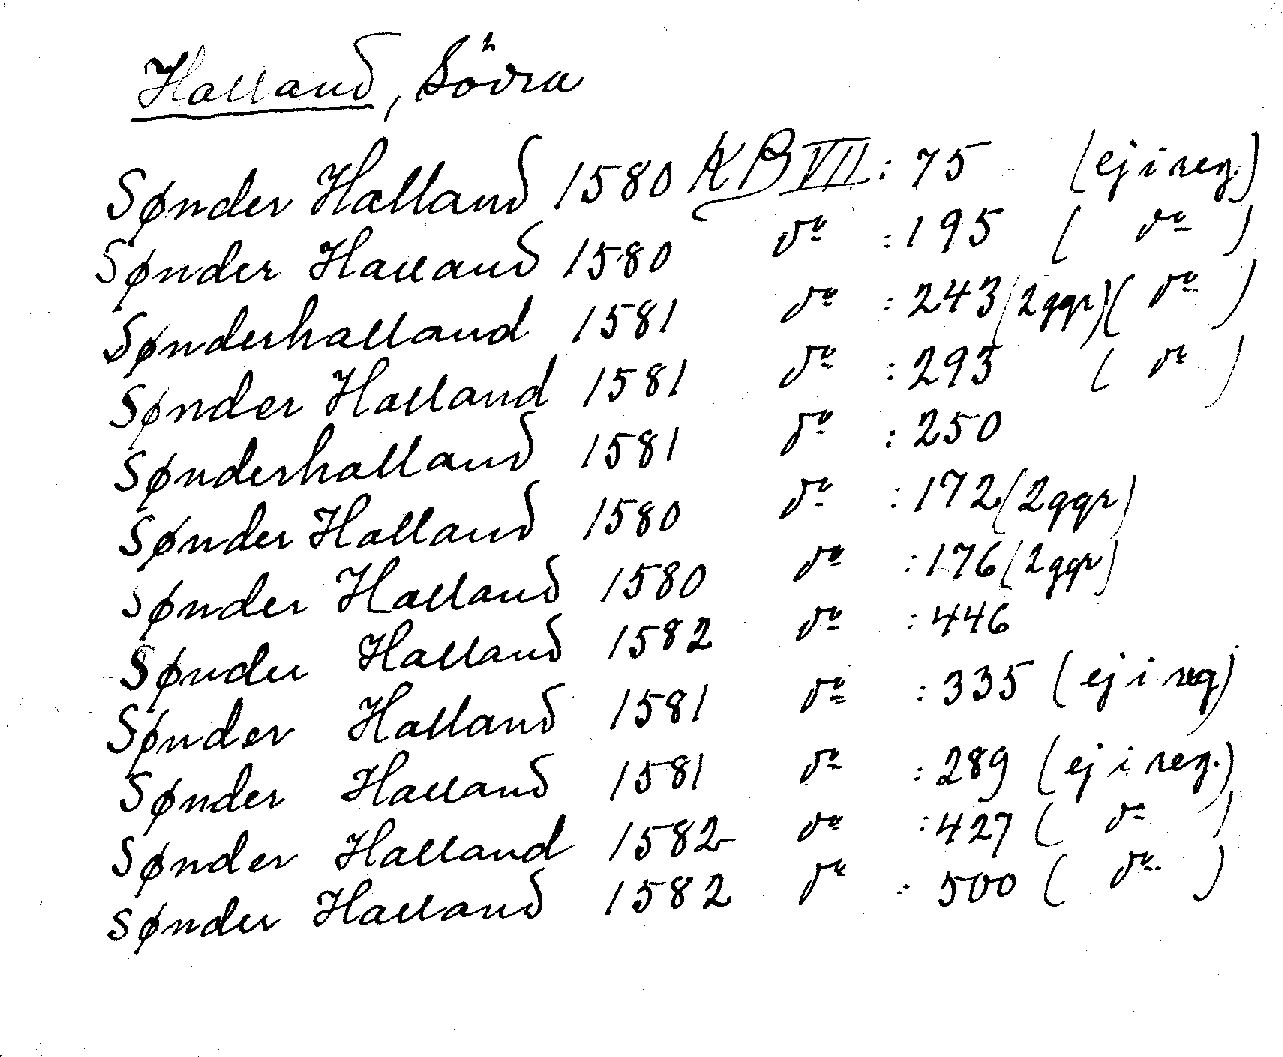 Halland, Södra
Sønder Halland 1580 KB VII : 75 (ej i reg.)
Sønder Halland 1580 do : 195 ( do )
Sønderhalland 1581 do : 243 (2 ggr) ( do )
Sønder Halland 1581 do : 293 ( do )
Sønderhalland 1581 do : 250
Sønder Halland 1580 do : 172 (2 ggr)
Sønder Halland 1580 do : 176 (2 ggr)
Sønder Halland 1582 do : 446
Sønder Halland 1581 do : 335 (ej i reg)
Sønder Halland 1581 do : 289 (ej i reg.)
Sønder Halland 1582 do : 427 ( do )
Sønder Halland 1582 do : 500 ( do )